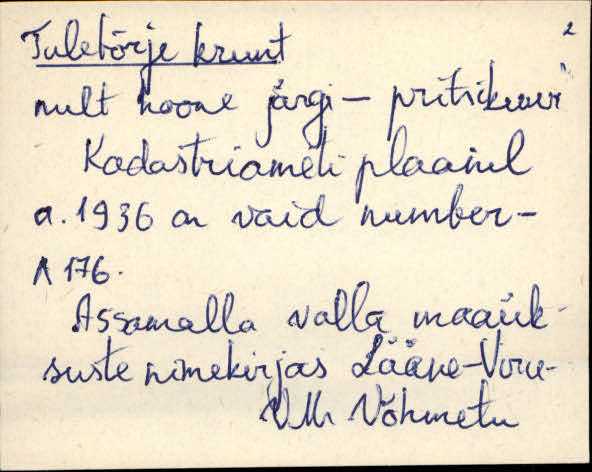 2
Tuletõrje krunt
nult hoone järgi – pritsikuur"
Kadastriameti plaanil
a. 1936 on vaid number –
A 176.
Assamalla valla maaük-
suste nimekirjas Lääne-Viru-
VM Võhmetu